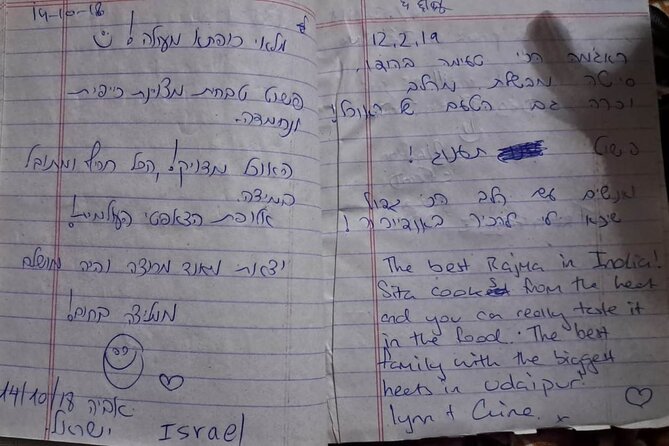 14-10-18
מלאי כופתא מעולה!
פשוט טבחית מצוינת כייפית
ונחמדה.
האוכל מדויק!, הכל חריף ומתובל
במידה.
אלופת הצ'אפטי העולמית!!
יצאתי מאוד מרוצה והיה מושלם
ממליצה בחום!
14/10/18 אביה
ישראל Israel
12.2.19
הראג'מה הכי טעימה בהודו!
סיטה מבשלת מהלב
וככה גם הטעם של האוכל!
פשוט תענוג!
אנשים עם הלב הכי גדול
שיצא לי להכיר באודייפור!
The best Rajma in India!
Sita cooks from the heat
and you can really taste it
in the food. The best
family with the biggest
heets in Udaipur!
Lynn +